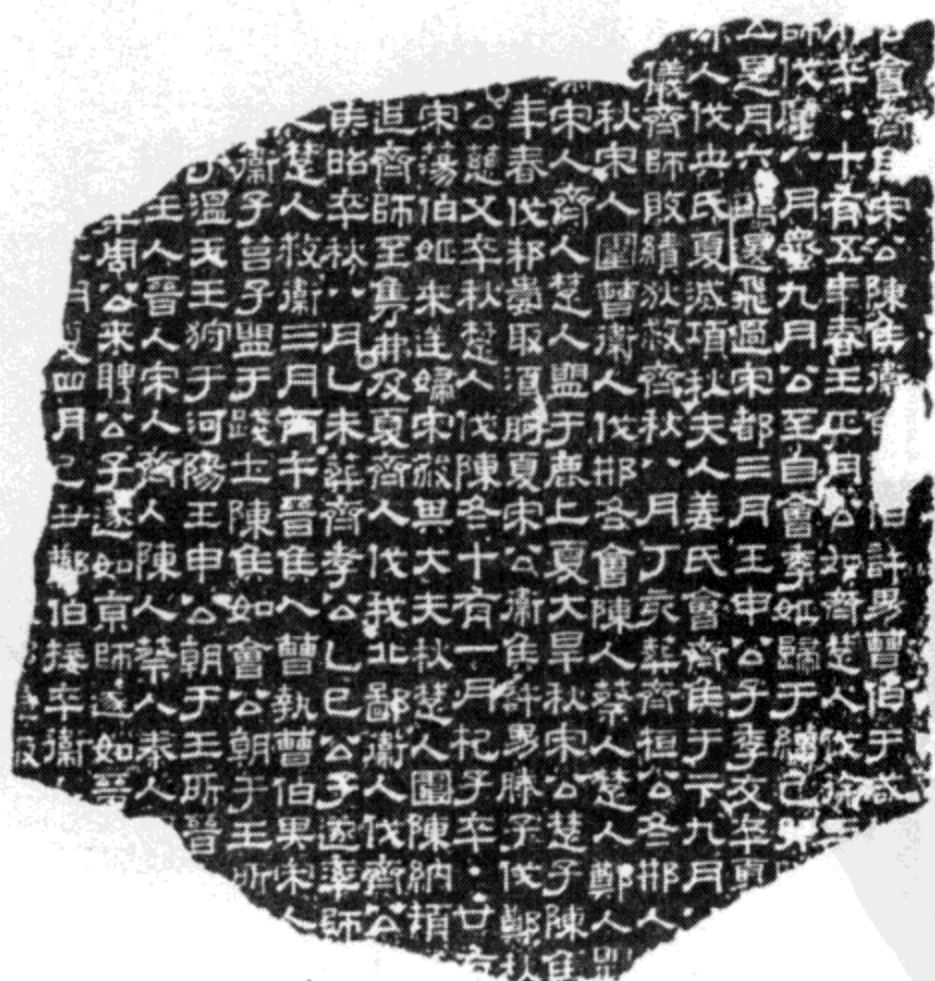 會齊侯宋公陳侯衛伯許男曹伯于咸
卒·十有五年春王正月公如齊楚人伐徐三
師伐厲八月螽九月公至自會季姬歸于繒己卯
公是月六鶂退飛過宋都三月壬申公子季友卒夏
徐人伐英氏夏滅項秋夫人姜氏會齊侯于卞九月
儀齊師敗績狄救齊秋八月丁亥葬齊桓公冬邢人
秋宋人圍曹衛人伐邢冬會陳人蔡人楚人鄭人盟
宋人齊人楚人盟于鹿上夏大旱秋宋公楚子陳侯
年春伐邾婁取須朐夏宋公衛侯許男滕子伐鄭秋
公慈父卒秋楚人伐陳冬十有一月杞子卒·廿有
宋蕩伯姬來逆婦宋殺其大夫秋楚人圍陳納頓
追齊師至巂弗及夏齊人伐我北鄙衛人伐齊公
侯昭卒秋八月乙未葬齊孝公乙巳公子遂率師
人楚人救衛三月丙午晉侯入曹執曹伯畀宋人
衛子莒子盟于踐土陳侯如會公朝于王所
于溫天王狩于河陽壬申公朝于王所晉
王人晉人宋人齊人陳人蔡人秦人
年周公來聘公子遂如京師遂如晉
月夏四月己丑鄭伯接卒衛